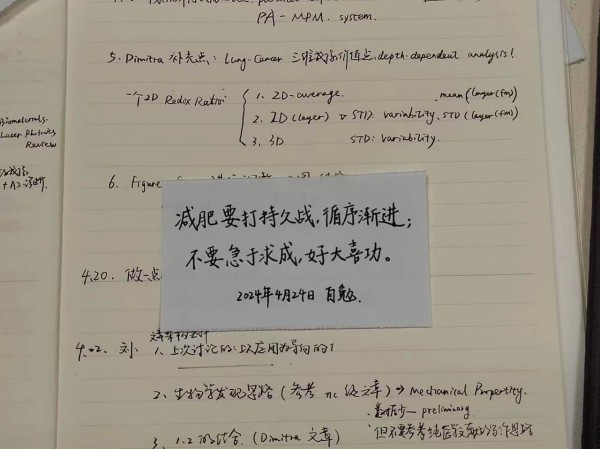 PA-MPM. system.
5. Dimitra 补充点: Lung-Cancer 三维成像价值点, depth-dependent analysis!
一个2D Redox Ratio:
1. 2D-average. mean(layer(fm)
2. 2D(layer) STD: variability. STD(layer(fm))
3. 3D STD: variability.
Biomaterials.
Laser Photonics
Review
6. Figure
减肥要打持久战,循序渐进;
不要急于求成,好大喜功。
2024年4月24日 自勉.
4.20. 做一点
4.02. 刘
1. 上次讨论的:以应用为导向的!
2. 生物学发现思路 (参考 nc 级文章) → Mechanical Propertity.
数据少— preliminary
3. 1.2 的结合. (Dimitra 文章)